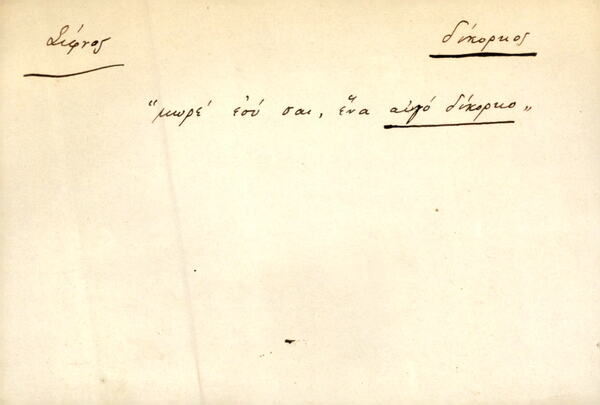 Σίφνος
δίκορκος
“μωρέ ἐσύ σαι, ἕνα αὐγό δίκορκο„